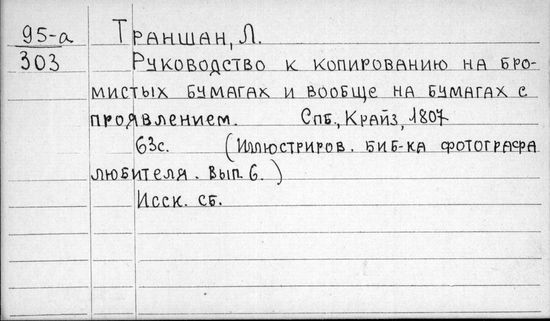 95-а Траншан, Л.
303 Руководство к копированию на бро-
мистых бумагах и вообще на бумагах с
проявлением. Спб., Крайз, 1807
63с. (Иллюстриров. биб-ка фотографа
любителя. Вып. 6.)
Исск. сб.